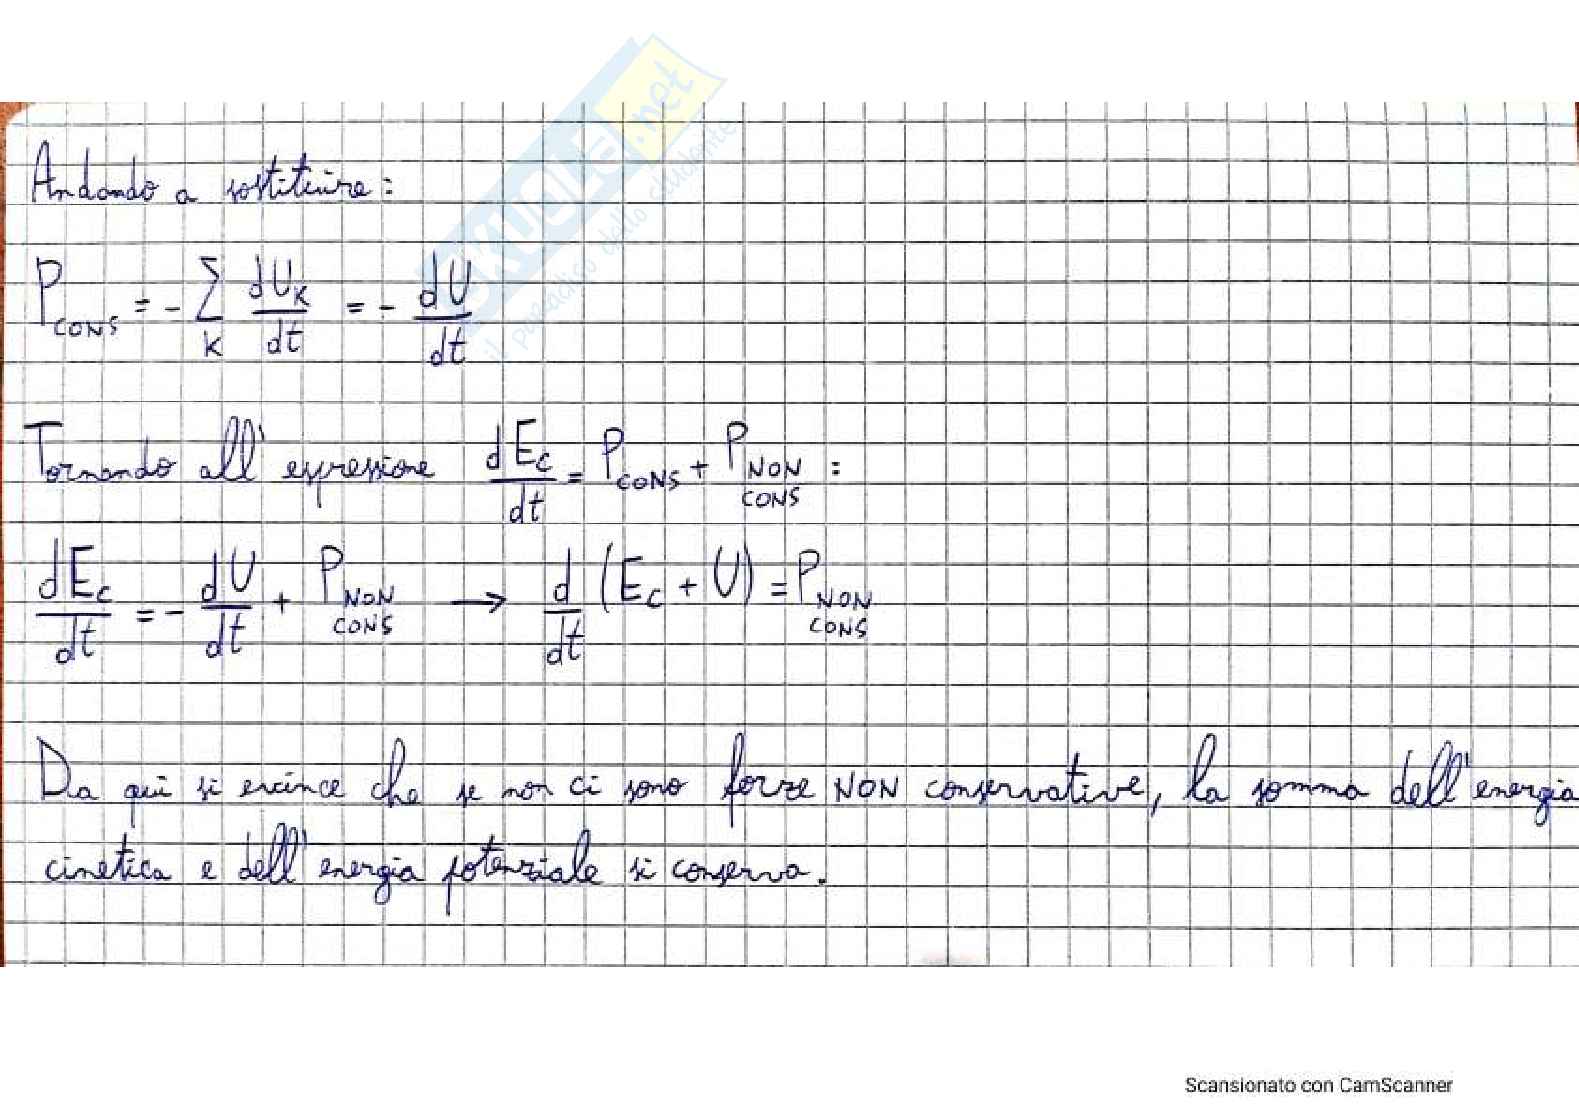 Andando a sostituire:
P_CONS = - Σ_K dU_K/dt = - dU/dt
Tornando all'espressione dE_c/dt = P_CONS + P_NON CONS :
dE_c/dt = - dU/dt + P_NON CONS → d/dt (E_c + U) = P_NON CONS
Da qui si evince che se non ci sono forze NON conservative, la somma dell'energia
cinetica e dell'energia potenziale si conserva.
SKUOLA.net
il paradiso dello studente
Scansionato con CamScanner